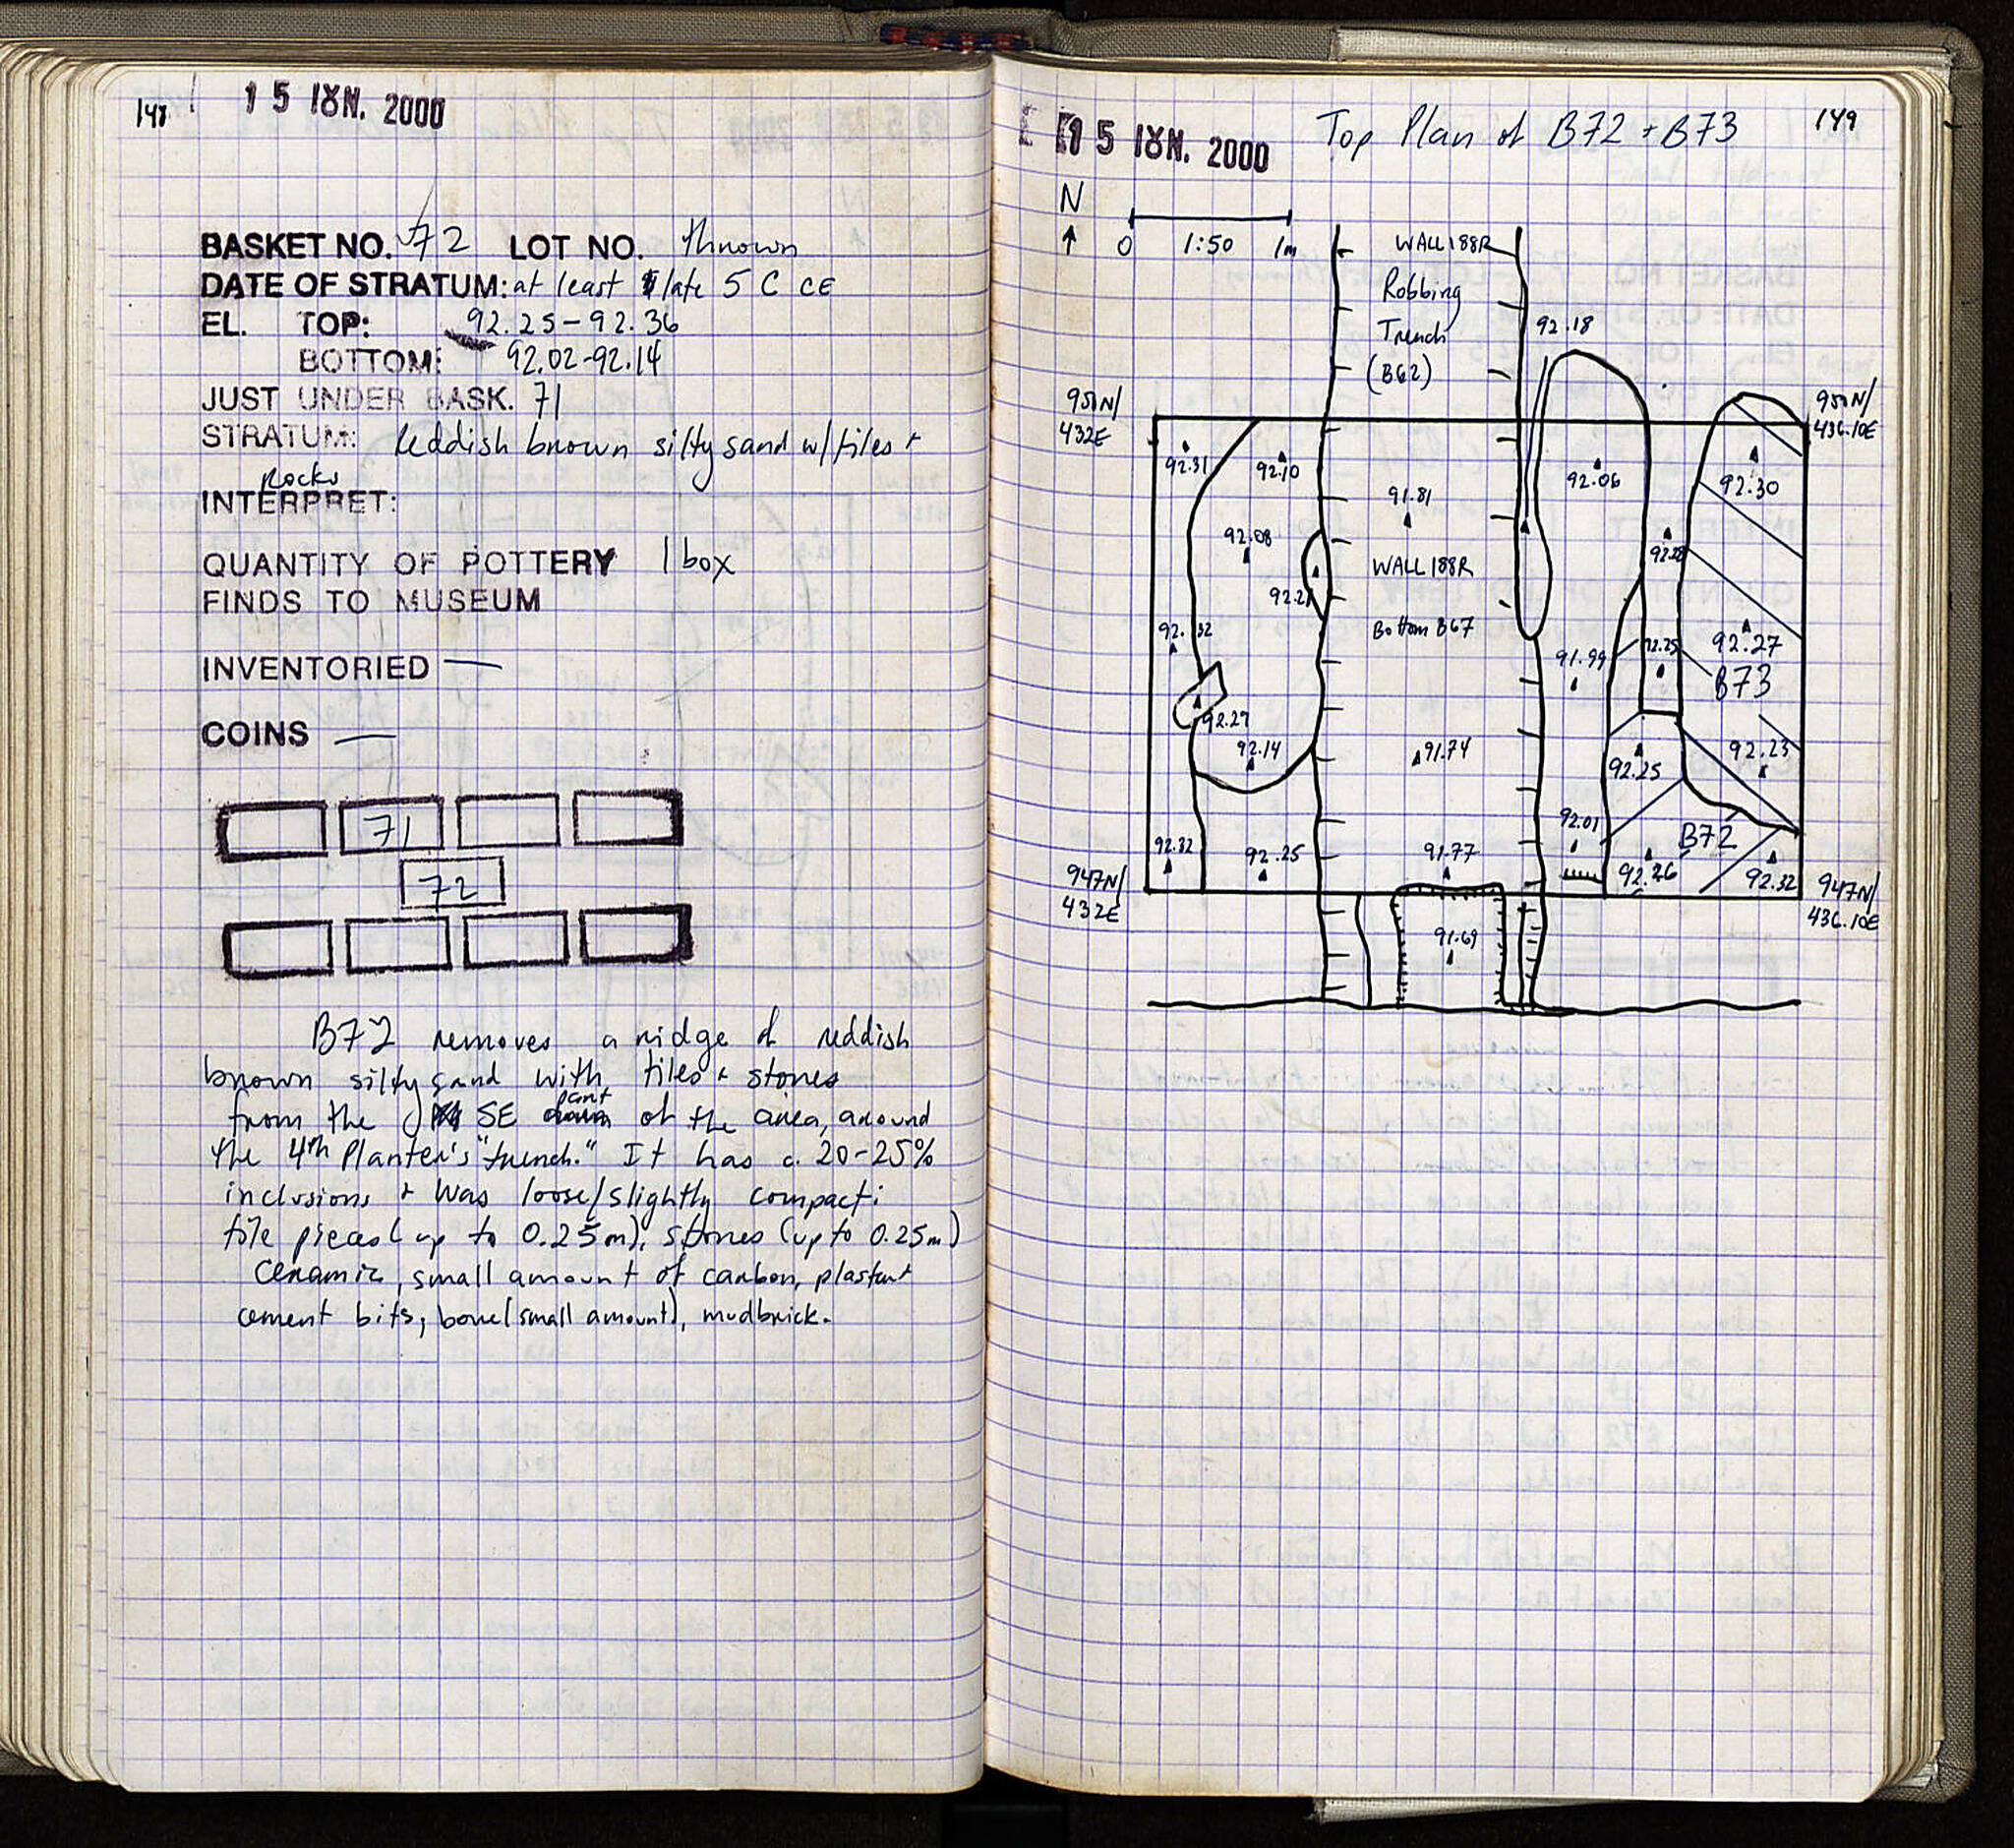 148
15 ΙȣΝ. 2000
BASKET NO. 72 LOT NO. thrown
DATE OF STRATUM: at least late 5 C CE
EL. TOP: 92.25-92.36
BOTTOM: 92.02-92.14
JUST UNDER BASK. 71
STRATUM: Reddish brown silty sand w/tiles +
Rocks
INTERPRET:
QUANTITY OF POTTERY 1 box
FINDS TO MUSEUM
INVENTORIED —
COINS —
71
72
B72 removes a ridge of reddish
brown silty sand with tiles + stones
from the SE part of the area, around
the 4th Planter's "trench." It has c. 20-25%
inclusions + was loose/slightly compact:
tile pieces (up to 0.25m), stones (up to 0.25m)
ceramic, small amount of carbon, plaster +
cement bits, bone (small amount), mudbrick.
15 ΙȣΝ. 2000
Top Plan of B72 + B73
149
N
0 1:50 1m
WALL 188R
Robbing
Trench
(B62)
92.18
950N/
432E
950N/
436.10E
92.31
92.10
91.81
92.06
92.30
92.08
92.28
WALL 188R
92.2
92.32
Bottom B67
91.99
92.25
92.27
B73
92.27
92.14
91.74
92.25
92.23
92.01
B72
92.32
92.25
91.77
92.26
92.32
947N/
432E
947N/
436.10E
91.69